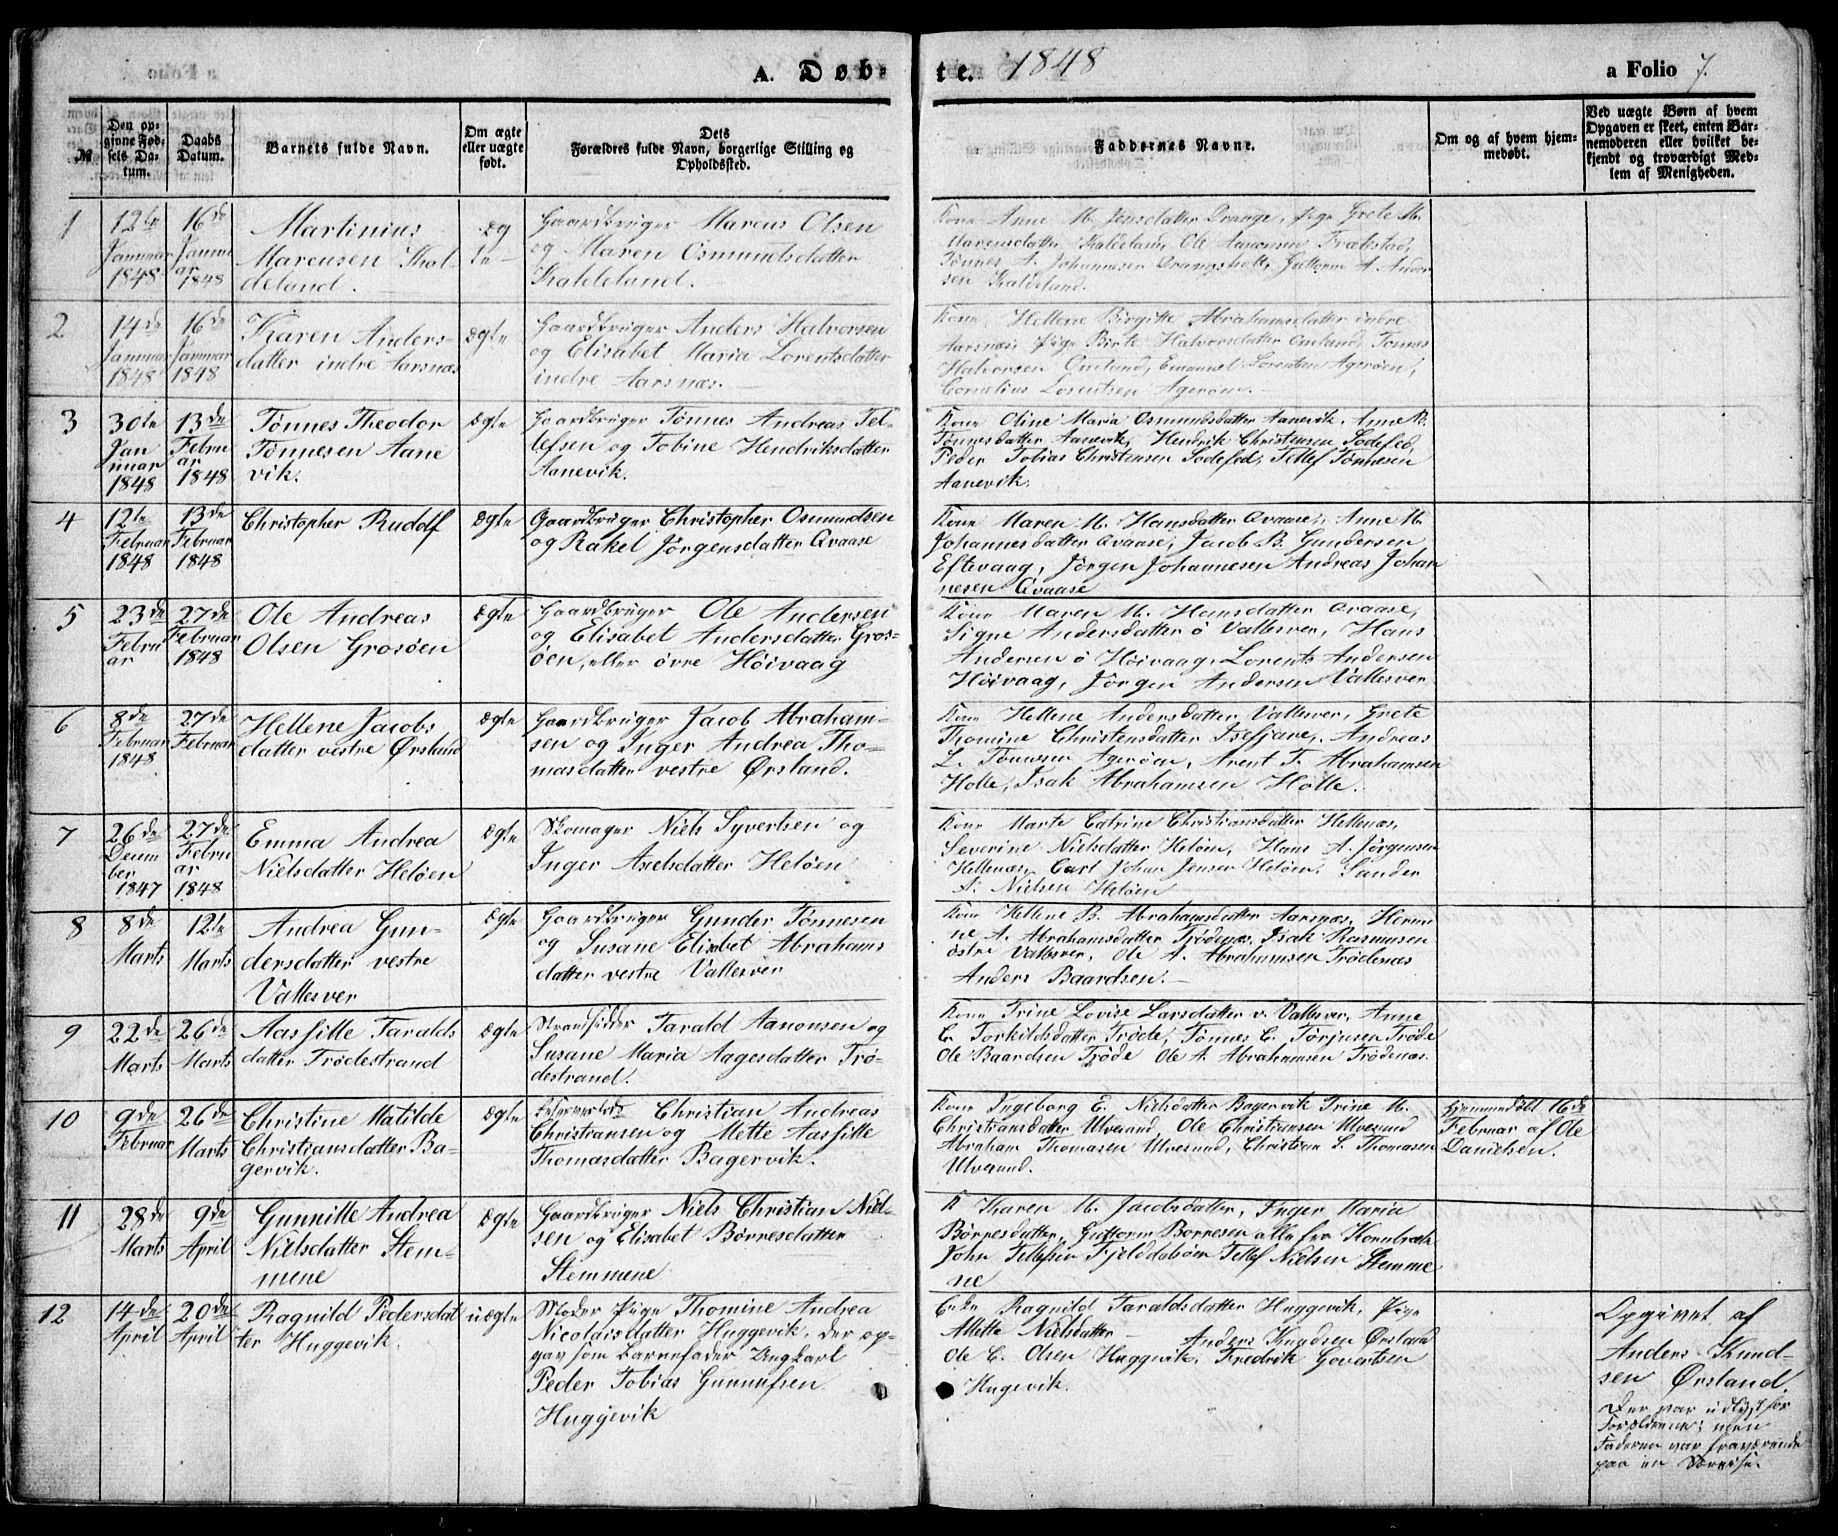 A. Døb-
te. 1848
a Folio 7.
№
Den op-
givne Fød-
sels Da-
tum.
Daabs
Datum.
Barnets fulde Navn.
Om ægte
eller uægte
født.
Dets
Forældres fulde Navn, borgerlige Stilling og
Opholdssted.
Faddernes Navne.
Om og af hvem hjem-
medøbt.
Ved uægte Børn af hvem
Opgaven er skeet, enten Bar-
nemoderen eller hvilket be-
kjendt og troværdigt Med-
lem af Menigheden.
1
12te
Januar
1848
16de
Janu
ar
1848
Martinius
Marcusen Kal-
deland.
æg
te-
Gaardbruger Marcus Olsen
og Maren Osmundsdatter
Kaldeland.
Kone Anne M. Jensdatter Drange, Pige Grete M.
Marcusdatter Kaldeland, Ole Aanonsen Frækstad,
Tønnes A. Johannesen Drangsholt, Guttorm A. Ander
sen Kaldeland.
2
14de
Januar
1848
16de
Januar
1848
Karen Anders-
datter indre Aarsnæs
ægte
Gaardbruger Anders Halvorsen
og Elisabet Maria Lorentsdatter
indre Aarsnæs.
Kone Hellene Birgitte Abrahamsdatter indre
Aarsnæs, Pige Birte Halvorsdatter Omland, Tønnes
Halvorsen Omland, Emanuel Lorentsen Agerøen,
Cornelius Lorentsen Agerøen.
3
30te
Jan
nuar
1848
13de
Febru
ar
1848
Tønnes Theodor
Tønnesen Aane
vik.
ægte
Gaardbruger Tønnes Andreas Tel-
lefsen og Tobine Hendriksdatter
Aanevik.
Kone Oline Maria Osmundsdatter Aanevik, Anne B.
Tønnesdatter Aanevik, Hendrik Christensen Sodefed,
Peder Tobias Christensen Sodefed, Tellef Tønnesen
Aanevik.
4
12te
Februar
1848
13de
Februar
1848
Christopher Rudolf
ægte
Gaardbruger Christopher Osmundsen
og Rakel Jörgensdatter Qvaase
Kone Maren M. Hansdatter Qvaase, Anne M.
Johannesdatter Qvaase, Jacob B. Gundersen
Eftevaag, Jörgen Johannesen Andreas Johan
nesen Qvaase
5
23de
Febru
ar
27de
Februar
1848
Ole Andreas
Olsen Grosöen
ægte
Gaardbruger Ole Andersen
og Elisabet Andersdatter Gros-
öen, eller övre Höivaag
Kone Maren M. Hansdatter Qvaase,
Signe Andersdatter ö Vallesver, Hans
Andersen ö Höivaag, Lorents Andersen
Höivaag, Jörgen Andersen Vallesver
6
8de
Februar
1848
27de
Februar
Hellene Jacobs
datter vestre Ørsland
ægte
Gaardbruger Jacob Abraham-
sen og Inger Andrea Tho-
masdatter vestre Ørsland.
Kone Hellene Andersdatter Vallesver, Grete
Thomine Christensdatter Isefjære, Andreas
L. Tönnesen Agerøen, Arent T. Abrahamsen
Holle, Isak Abrahamsen Holle.
7
26de
Decem
ber
1847
27de
Febru
ar
1848
Emma Andrea
Nielsdatter Heløen
ægte
Skomager Niels Syvertsen og
Inger Axelsdatter Heløen
Kone Marte Catrine Christiansdatter Hellenæs,
Severine Nielsdatter Heløen, Hans A. Jörgensen
Hellenæs, Carl Johan Jensen Heløen, Sander
A. Nielsen Heløen
8
8de
Marts
12te
Marts
Andrea Gun-
dersdatter vestre
Vallesver
ægte
Gaardbruger Gunder Tönnesen
og Susane Elisabet Abrahams
datter vestre Vallesver
Kone Hellene B. Abrahamsdatter Aarsnæs, Hermi
ne A. Abrahamsdatter Trödenæs, Isak Rasmusen
östre Vallesver, Ole A. Abrahamsen Trödenæs
Anders Baardsen.
9
22de
Marts
26de
Marts
Aassille Taralds
datter Trödestrand
ægte
Strandsidder Tarald Aanonsen og
Susane Maria Aagesdatter Trö-
destrand.
Kone Trine Lovise Larsdatter v. Vallesver, Anne
C. Torkildsdatter Tröde, Tönnes C. Törjusen Tröde
Ole Baardsen Tröde Ole A. Abrahamsen Trödenæs.
10
9de
Februar
26de
Marts
Christine Matilde
Christiansdatter Ba-
gervik.
ægte
Christian Andreas
Christiansen og Mette Aassille
Thomasdatter Bagervik.
Kone Ingeborg E. Nielsdatter Bagervik Trine M.
Christiansdatter Ulvesund, Ole Christiansen Ulvesund
Abraham Thomasen Ulvesund, Christian S. Thomasen
Ulvesund.
Hjemmedöbt 16de
Februar af Ole
Danielsen.
11
28de
Marts
9de
April
Gunnille Andrea
Nielsdatter Stem-
mene
ægte
Gaardbruger Niels Christian Niel-
sen og Elisabet Börresdatter
Stemmene
K Karen M. Jacobsdatter, Inger Maria
Börresdatter, Guttorm Börresen alle fra Kornbræk
John Tellefsen Fjelddalöm Tellef Nielsen Stemme
ne
12
14de
April
20de
April
Ragnild Pedersdat
ter Huggevik.
uægte
Moder Pige Thomine Andrea
Nicolaisdatter Huggevik, der op-
gav som Barnefader Ungkarl
Peder Tobias Gunnufsen
Huggevik
Enke Ragnild Taraldsdatter Huggevik, Pige
Mette Nielsdatter - Anders Knudsen Ørsland
Ole C. Olsen Huggevik, Fredrik Govertsen
Hugevik.
Opgivet af
Anders Knud-
sen Ørsland.
Der var udlyst for
Forældrene, men
Faderen var fraværende
paa en Söreise.